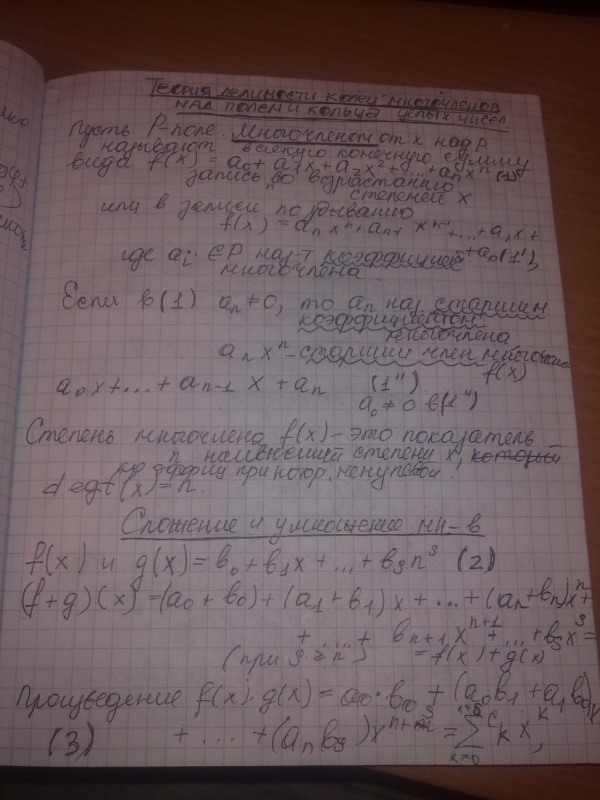 Теория делимости колец многочленов
над полем и кольца целых чисел
Пусть P-поле. Многочленом от x над P
называют всякую конечную сумму
вида f(x) = a₀ + a₁x + a₂x² + ... + aₙxⁿ (1)
запись во возрастанию
степеней x
или в записи по убыванию
f(x) = aₙxⁿ + aₙ₊₁ xⁿ⁻¹ + ... + a₁x +
+ a₀ (1'),
где aᵢ ∈ P наз-т коэффициен
многочлена
Если в (1) aₙ ≠ 0, то aₙ наз старшим
коэффициентом
многочлена
aₙxⁿ - старший член многочлена
f(x)
a₀x + ... + aₙ₋₁ x + aₙ (1'')
a₀ ≠ 0 в (1'')
Степень многочлена f(x) - это показатель
n наивысшей степени x, который
коэффиц при котор. ненулевой.
deg f(x) = n.
Сложение и умножение мн-в
f(x) и g(x) = b₀ + b₁x + ... + bₛnˢ (2)
(f+g)(x) = (a₀ + b₀) + (a₁ + b₁)x + ... + (aₙ + bₙ)xⁿ +
+ ... + bₙ₊₁xⁿ⁺¹ + ... + bₛxˢ =
(при s ≥ n) = f(x) + g(x)
Произведение f(x)·g(x) = a₀·b₀ + (a₀b₁ + a₁b₀)x
(3) + ... + (aₙbₛ)xⁿ⁺ˢ = ∑ₖ₌₀ⁿ⁺ˢ cₖxᵏ,